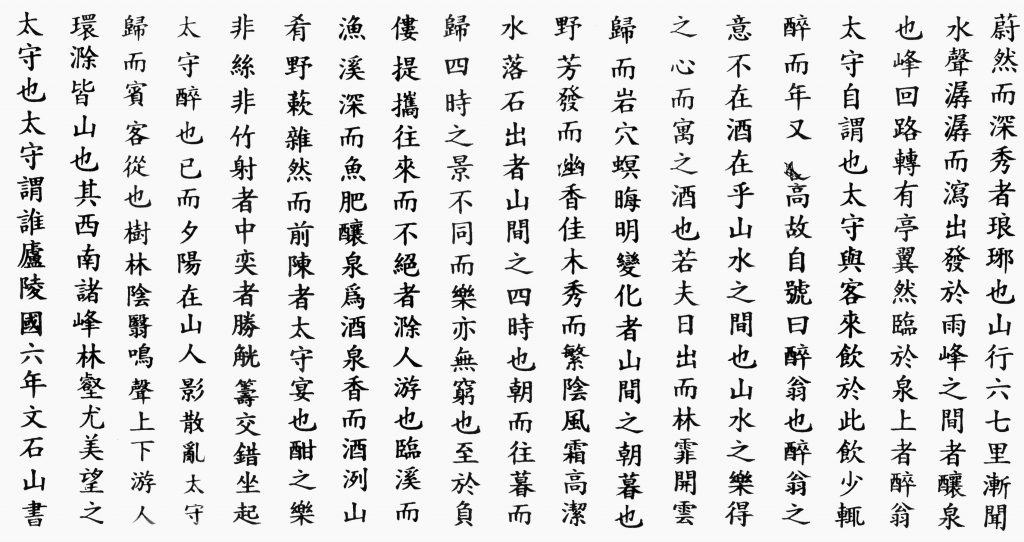 蔚然而深秀者琅琊也山行六七里漸聞
水聲潺潺而瀉出發於雨峰之間者釀泉
也峰回路轉有亭翼然臨於泉上者醉翁
太守自謂也太守與客來飲於此飲少輒
醉而年又高故自號曰醉翁也醉翁之
意不在酒在乎山水之間也山水之樂得
之心而寓之酒也若夫日出而林霏開雲
歸而岩穴螟晦明變化者山間之朝暮也
野芳發而幽香佳木秀而繁陰風霜高潔
水落石出者山間之四時也朝而往暮而
歸四時之景不同而樂亦無窮也至於負
僂提攜往來而不絕者滁人游也臨溪而
漁溪深而魚肥釀泉爲酒泉香而酒洌山
肴野蔌雜然而前陳者太守宴也酣之樂
非絲非竹射者中奕者勝觥籌交錯坐起
太守醉也已而夕陽在山人影散亂太守
歸而賓客從也樹林陰翳鳴聲上下游人
環滁皆山也其西南諸峰林壑尤美望之
太守也太守謂誰廬陵國六年文石山書